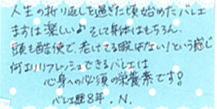 人生の折り返しを過ぎた頃始めたバレエ
まずは楽しい♪そして身体はもちろん、
頭も酷使で、老けてる暇はない!という感じ
何よりリフレッシュできるバレエは
心身への必須の栄養素です。
バレエ歴8年.N.